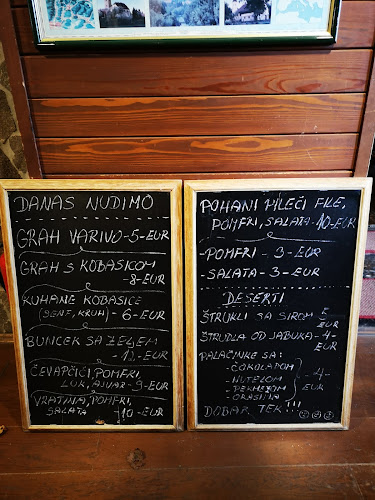 DANAS NUDIMO
GRAH VARIVO - 5 - EUR
GRAH S KOBASICOM
8 - EUR
KUHANE KOBASICE
(SENF, KRUH) - 6 - EUR
BUNCEK SA ZELJEM
- 12 - EUR
ĆEVAPČIĆI, POMFRI,
LUK, AJVAR - 9 - EUR
VRATINA, POMFRI,
SALATA 10 - EUR
POHANI PILEĆI FILE,
POMFRI, SALATA - 10 - EUR
- POMFRI - 3 - EUR
- SALATA - 3 - EUR
DESERTI
ŠTRUKLI SA SIROM 5
EUR
ŠTRUDLA OD JABUKA - 4 -
EUR
PALAČINKE SA:
- ČOKOLADOM
- NUTELOM - 4 -
- PEKMEZOM EUR
- ORASIMA
DOBAR TEK!!!